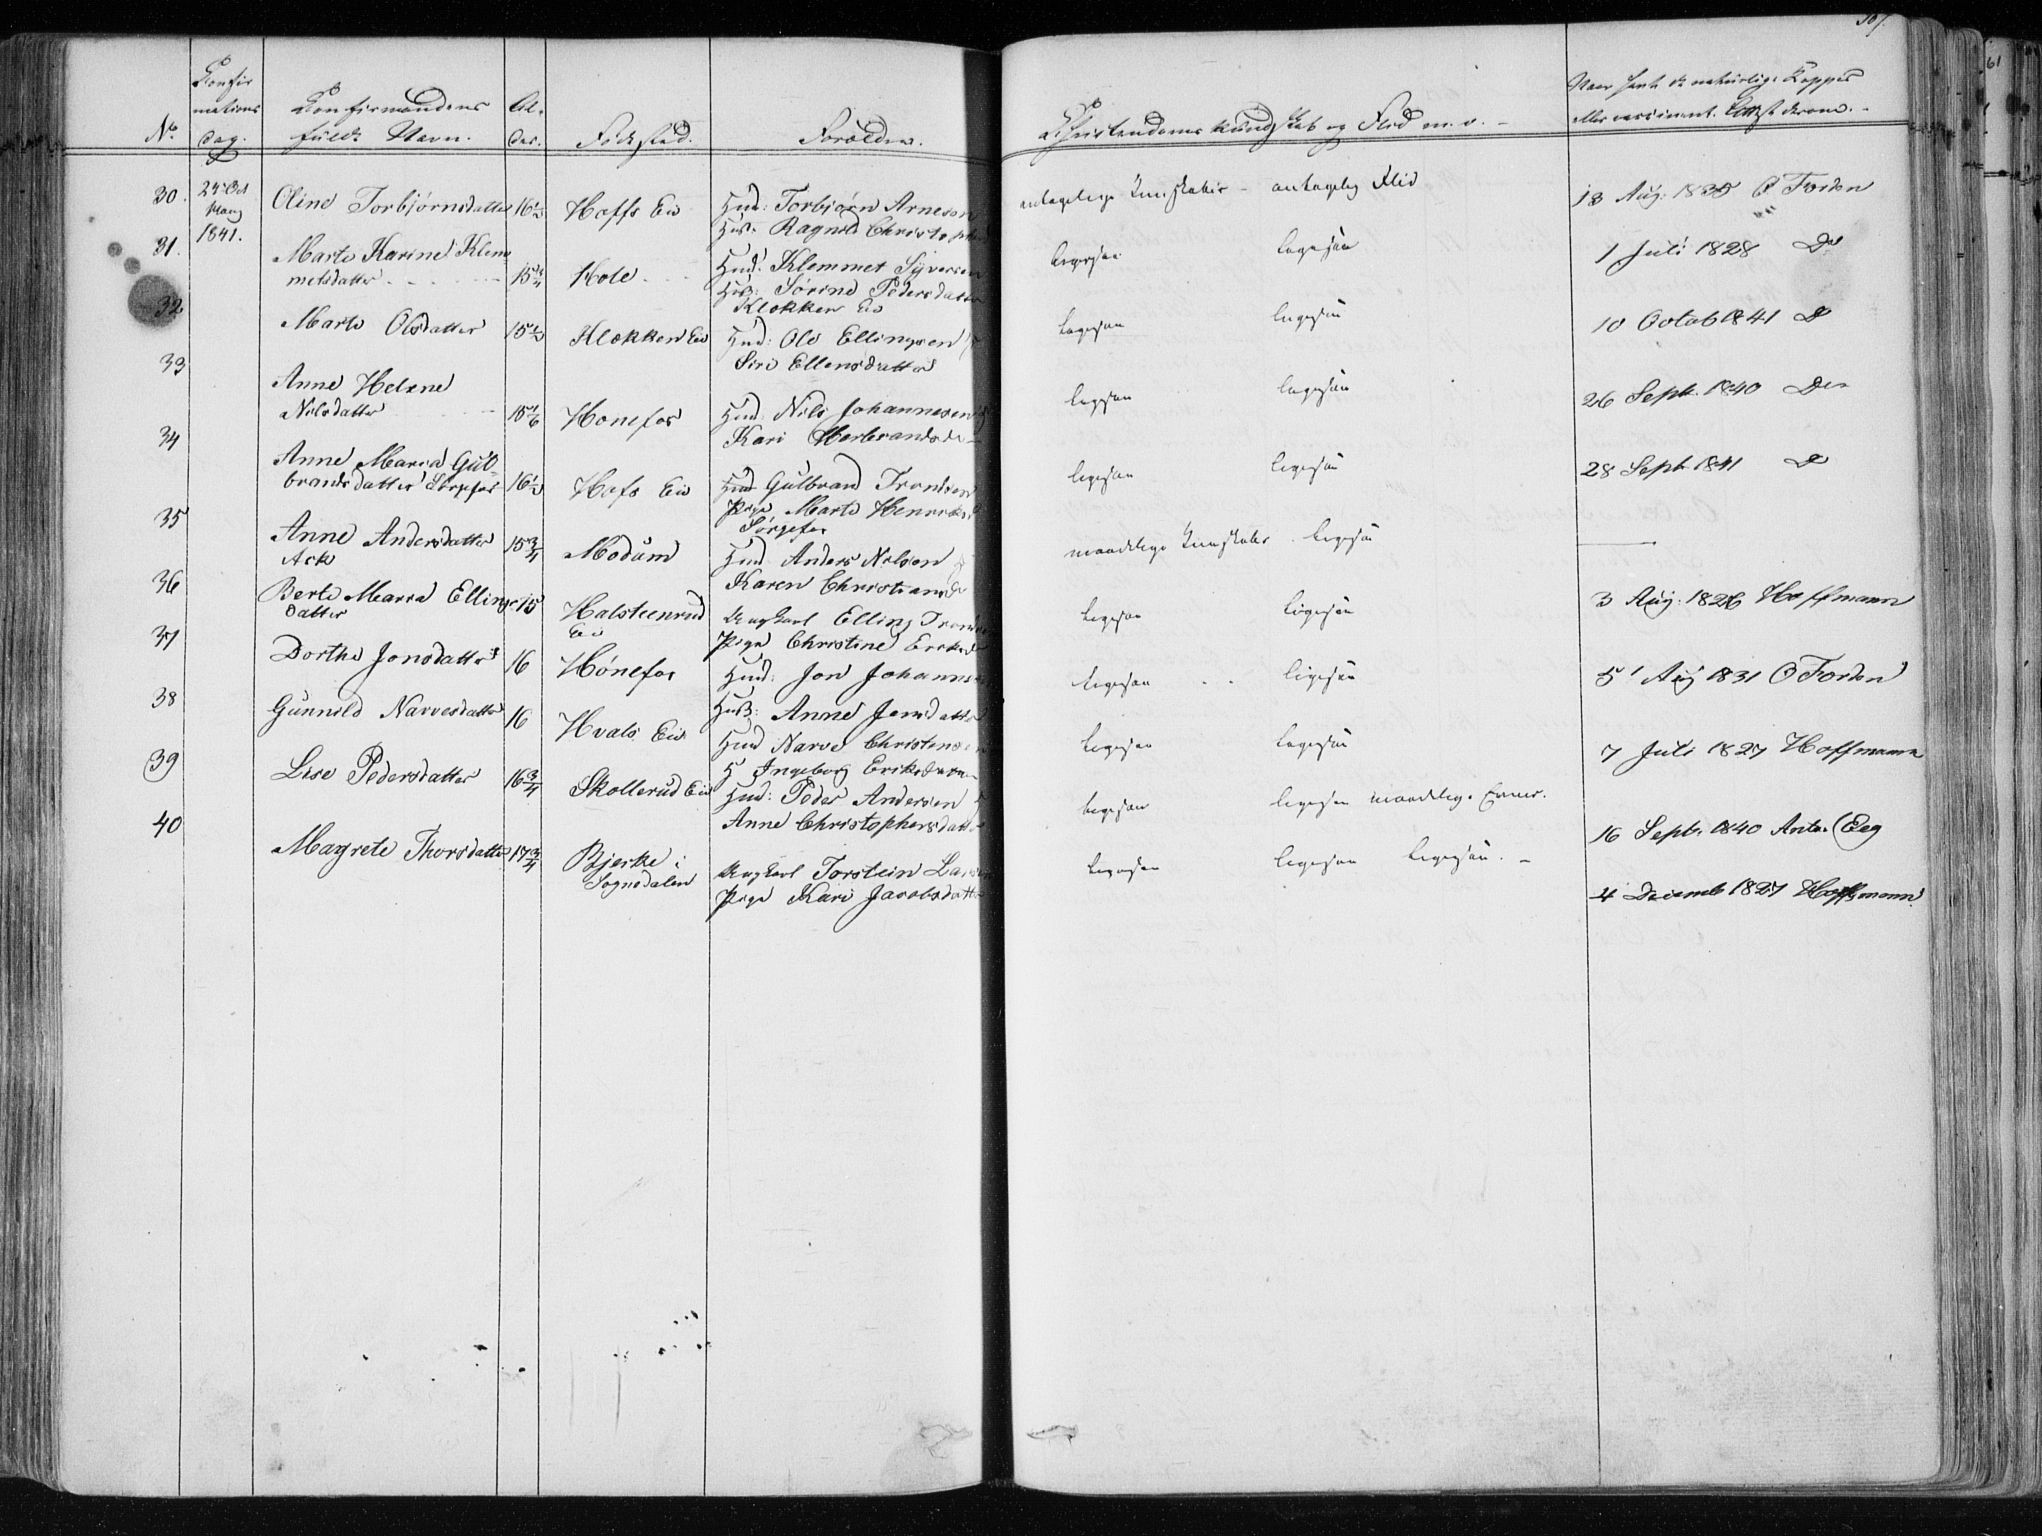 307.
No
Confir
mations
Dag.
Confirmandens
fulde Navn.
Al-
der.
Födested.
Forældre.
Christendoms Kundskab og Flid m. v. -
Naar havt de naturlige Kopper
eller vaccineret. Attest derom. -
30. 24 Oct 1841. Oline Torbjørnsdatter 16½ Hoffs Eie Huus: Torbjørn Arnesen
Hust: Ragnild Christoph
antagelige Kundskaber - antagelig Flid 18 Aug: 1835 O Forden
31. Marte Karine Klem
metsdatter - - - - 15¾ Hole - - Huus: Klemmet Syversen
Hust: Sørine Pedersdatter
Klokken Eie
ligesaa ligesaa 1 Juli 1828 Do
32 Marte Olsdatter 15½ Klokken Eie Huus: Ole Ellingsen
Siri Ellensdatter
ligesaa ligesaa 10 Octob 1841 Do
33 Anne Helene
Nilsdatter - - 15 1/6 Honefos Huus: Nils Johannesen
Kari Herbrandsd
ligesaa ligesaa 26 Sept. 1840 Do
34 Anne Maria Gul-
brandsdatter Sørgefos 16½ Hofs Eie Huus Gulbrand Trondsen
Pige Marte Henriks
Sørgefos
ligesaa ligesaa 28 Sept 1841 Do
35 Anne Andersdatter
Ask 15¾ Modum Huus Anders Nilsen
Karen Christiansd
maadelige Kundskaber. ligesaa
36 Berte Maria Ellings
datter 15 Halsteenrud
Eie Ungkarl Elling Trond
Pige Christine Ericksd
ligesaa ligesaa 3 Aug: 1826 Hoffmann
37 Dorthe Jonsdatter 16 Hønefos Huus: Jon Johanns
Hust: Anne Jensdatter
ligesaa - - ligesaa 5 Aug 1831 O Forden
38 Gunnild Narvesdatter 16 Hvals Eie Huus Narve Christensen
H Ingeborg Eriksdatter
ligesaa ligesaa 7 Juli 1827 Hoffmann
39 Lise Pedersdatter 16¾ Skollerud Eie Huus: Peder Andersen
Anne Christophersdatter
ligesaa ligesaa maadelige Evner. 16 Septr. 1840 Anto. Eeg
40 Magrete Thorsdatter 17¾ Bjerke i
Sognedalen Ungkarl Torstein Lars
Pige Kari Jacobsdatter
ligesaa ligesaa ligesaa. - 4 Decemb 1827 Hoffmann